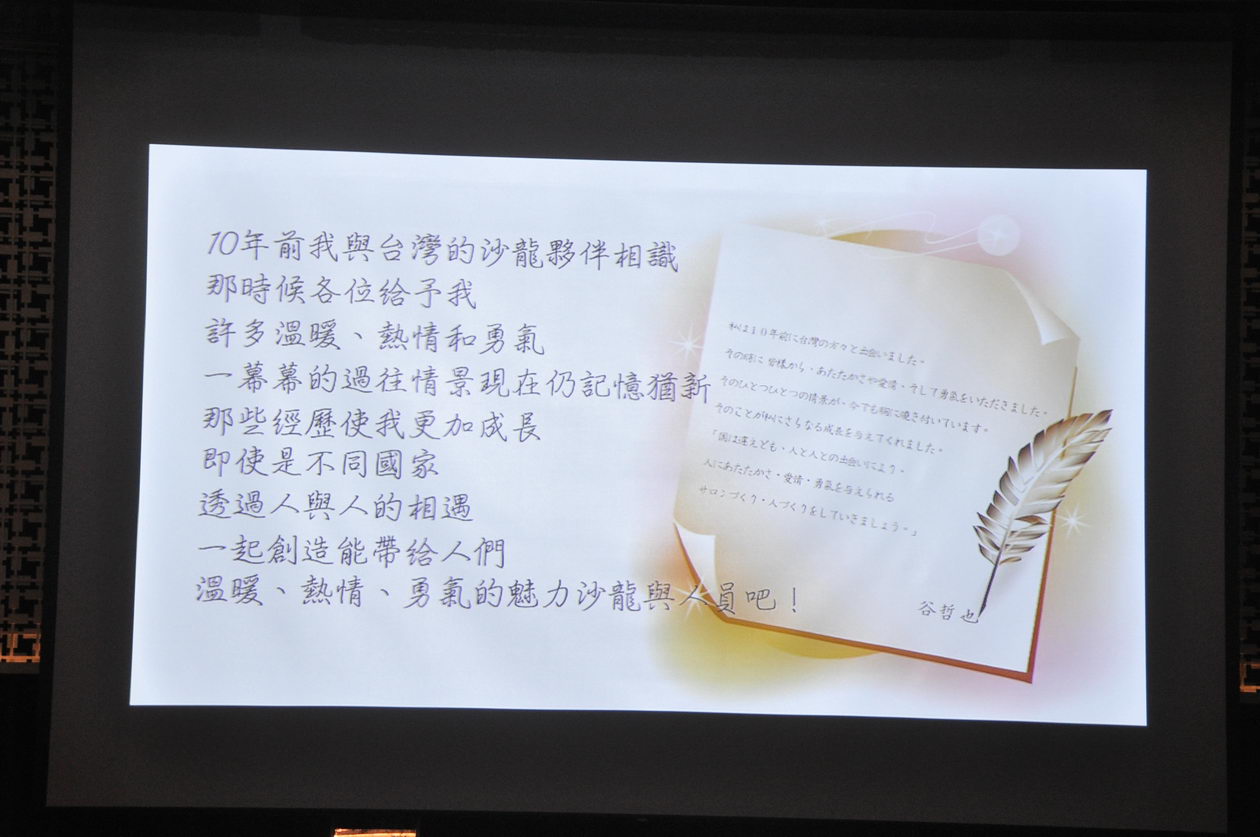 10年前我與台灣的沙龍夥伴相識
那時候各位給予我
許多溫暖、熱情和勇氣
一幕幕的過往情景現在仍記憶猶新
那些經歷使我更加成長
即使是不同國家
透過人與人的相遇
一起創造能帶給人們
溫暖、熱情、勇氣的魅力沙龍與人員吧！
私は１０年前に台灣の方々と出会いました。
その時に皆様から、あたたかさや愛情、そして勇氣をいただきました。
そのひとつひとつの情景が、今でも胸に焼き付いています。
そのことが私にさらなる成長を与えてくれました。
「国は違えども、人と人との出会いにより、
人にあたたかさ、愛情、勇氣を与えられる
サロンづくり、人づくりをしていきましょう。」
谷哲也